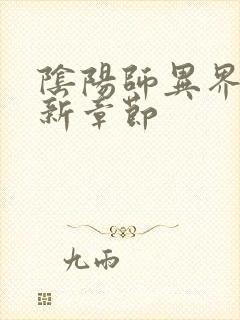 陰陽師異界
新章節
九雨